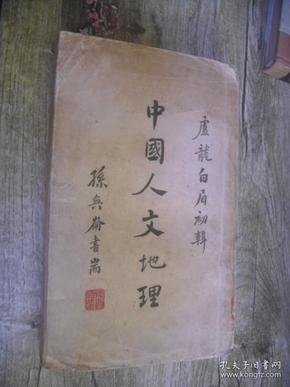 盧龍白眉初輯
中國人文地理
孫奐崙書耑
孔夫子旧书网